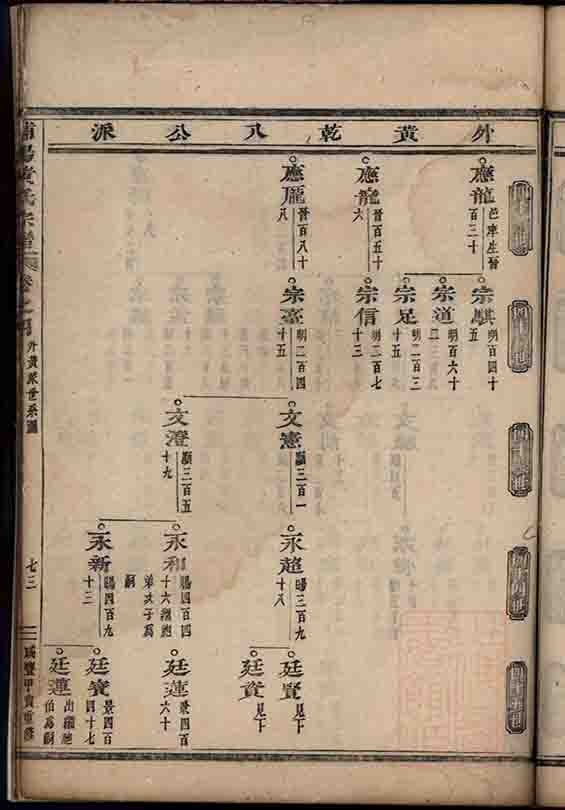 外黃乾八公派
應龍
邑庠生晉
百三十
應龍
晉百五十
六
應鳳
晉百八十
八
宗騏
明百四十
五
宗道
明百六十
宗足
明二百三
十五
宗信
明二百七
十三
宗臺
明二百四
十五
文憲
顯三百一
文澄
顯三百五
十九
永超
暘三百九
十八
永和
暘四百四
弟次子爲
嗣
永新
暘四百九
十三
廷賢
見下
廷資
見下
廷蓮
景四百
六十
廷寶
景四百
四十七
廷蓮
出繼胞
伯爲嗣
宗譜
卷之四
外黃派世系圖
七三
咸豐甲寅重修